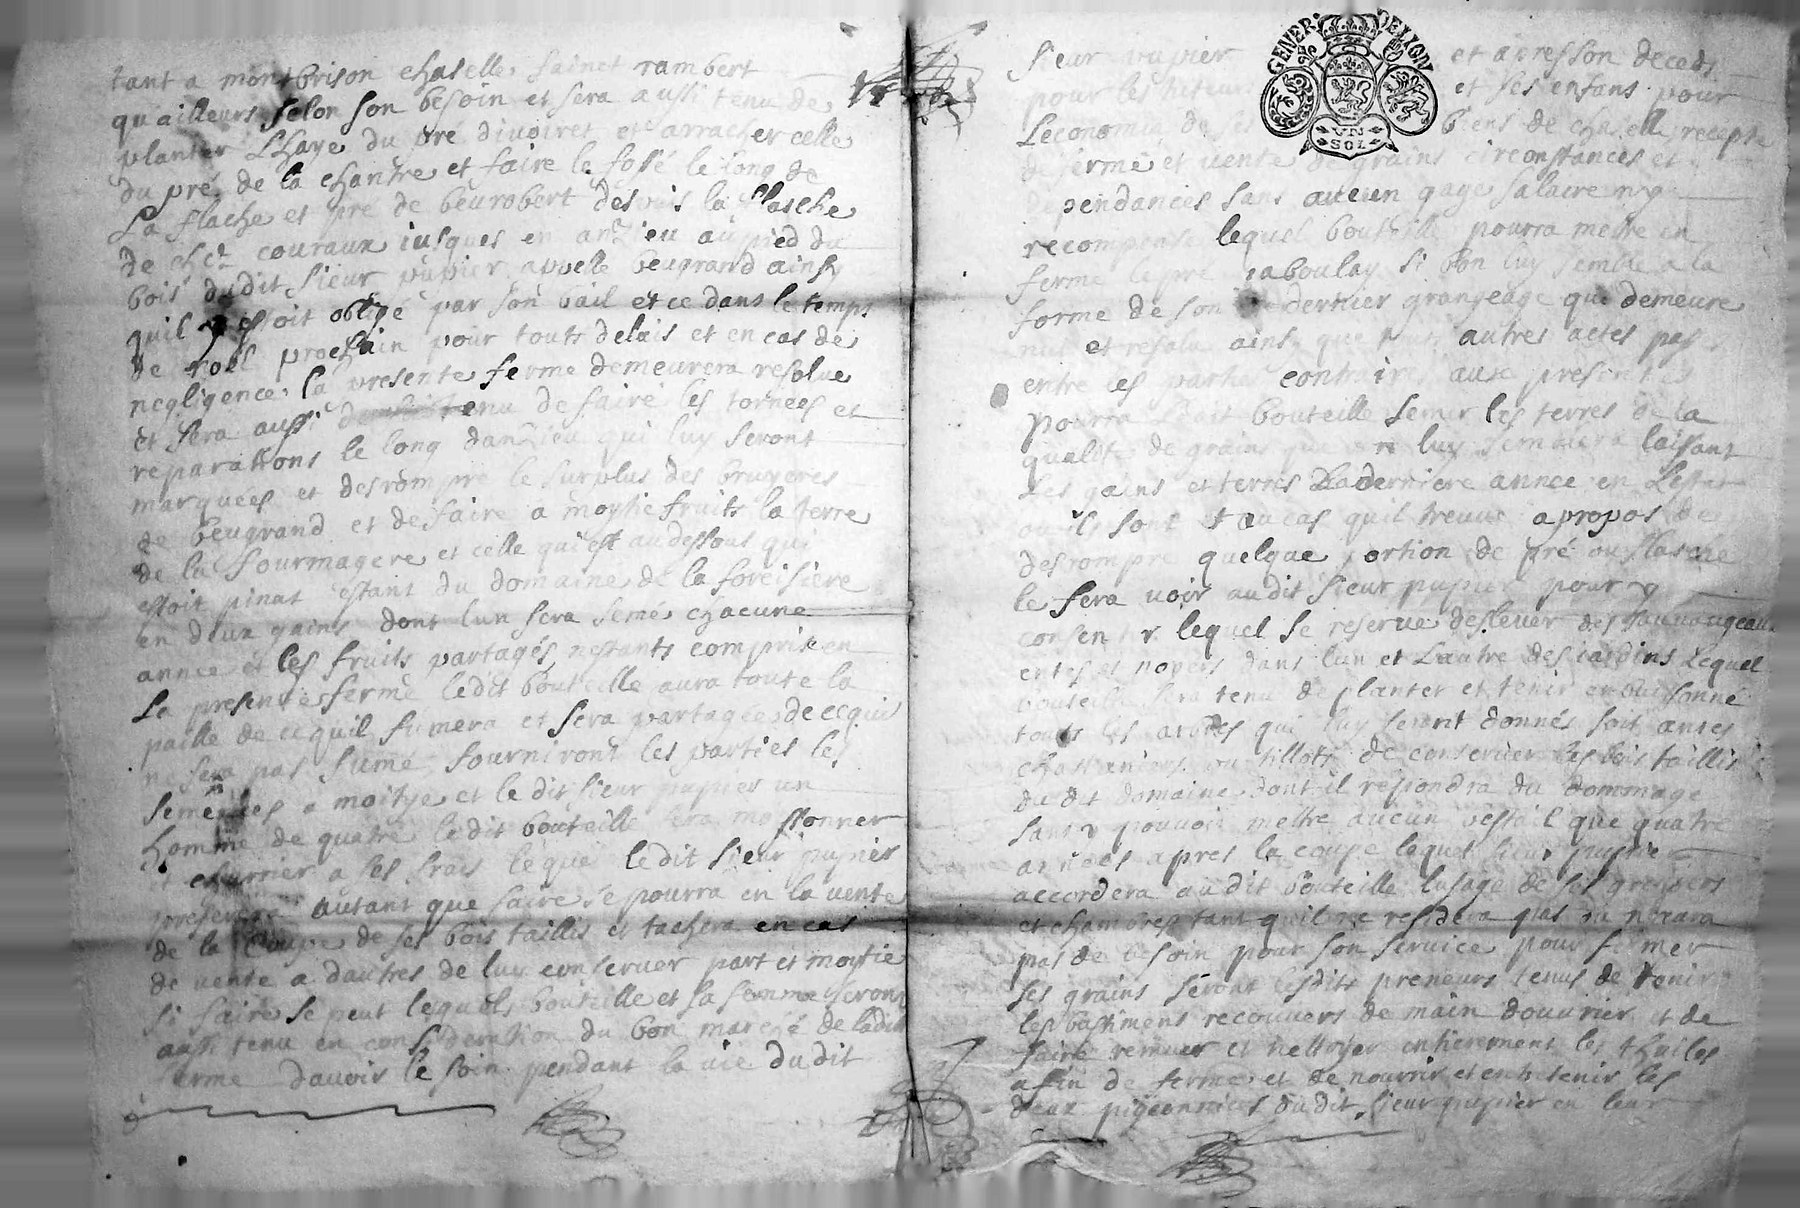 tant a montbrison chaselles sainct rambert
qu'ailleurs selon son besoin et sera aussi tenu de
planter Lhaye du pré divoiret et arracher celle
du pré de la chantre et faire le fossé le long de
La flache et pré de beurobert despuis la flasche
de couraux iusques en anzieu au pied du
bois dudit sieur pupier appellé beugrand ainsy
quil estoit obligé par son bail et ce dans le temps
de noel prochain pour touts delais et en cas de
negligence la presente ferme demeurera resolue
et sera aussi tenu de faire les tornees et
reparations le long danzieu qui luy seront
marquees et desrompre le surplus des bruyeres
de beugrand et de faire a moytié fruits la terre
de la fourmagere et celle qui est au dessous qui
estoit pinat estant du domaine de la foreisiere
en deux gains dont lun sera semé chacune
annee et les fruits partagés nestants compris en
La presente ferme ledit bouteille aura toute la
paille de ce quil fumera et sera partagée de ce qui
ne sera pas fumé fourniront les parties les
semences a moitye et le dit sieur pupier un
homme de quatre ledit bouteille fera moissonner
et charrier a ses frais lequel ledit sieur pupier
preferera autant que faire se pourra en la vente
de la coupe de ses bois taillis et tachera en cas
de vente a dautres de luy conserver part et moytié
si faire se peut lequels bouteille et sa femme seront
aussi tenu en consideration du bon marché de ladite
ferme davoir le soin pendant la vie dudit
sieur pupier et apres son deceds
pour les et ses enfans pour
Leconomie de ses biens de chaselle recepte
de ferme et vente de grains circonstances et
dependances sans aucun gage salaire ny
recompense lequel bouteille pourra metre en
ferme le pré raboulay si bon luy semble a la
forme de son dernier grangeage qui demeure
nul et resolu ainsy que tous autres actes pas
entre les parties contraires aux presentes
pourra ledit bouteille semer les terres de la
qualité de grains que bon luy semblera laissant
Les gains et terres La derniere annee en Lestat
ou ils sont et au cas quil treuve a propos de
desrompre quelque portion de pré ou flasche
le fera voir audit sieur pupier pour y
consentir lequel se reserve deslever des sauvageaux
entes et noyers dans lun et Lautre des iardins Lequel
bouteille sera tenu de planter et tenir enbuisonné
touts les arbres qui luy seront donnés soit antes
chastaniers ou tillots de conserver les bois taillis
du dit domaine dont il respondra du dommage
sans y pouvoir mettre aucun bestail que quatre
annees apres la coupe lequel sieur pupier
accordera audit bouteille lusage de ses greniers
et chambres tant quil ne residera pas ou naura
pas de besoin pour son service pour fermer
ses grains seront lesdits preneurs tenus de tenir
les bastiments recouvers de main douvrier et de
faire remuer et nettoyer entierement les thuiles
a fin de ferme et de nourrir et entretenir les
deux pigeonniers dudit sieur pupier en leur
GENER. DE LYON
UN
SOL